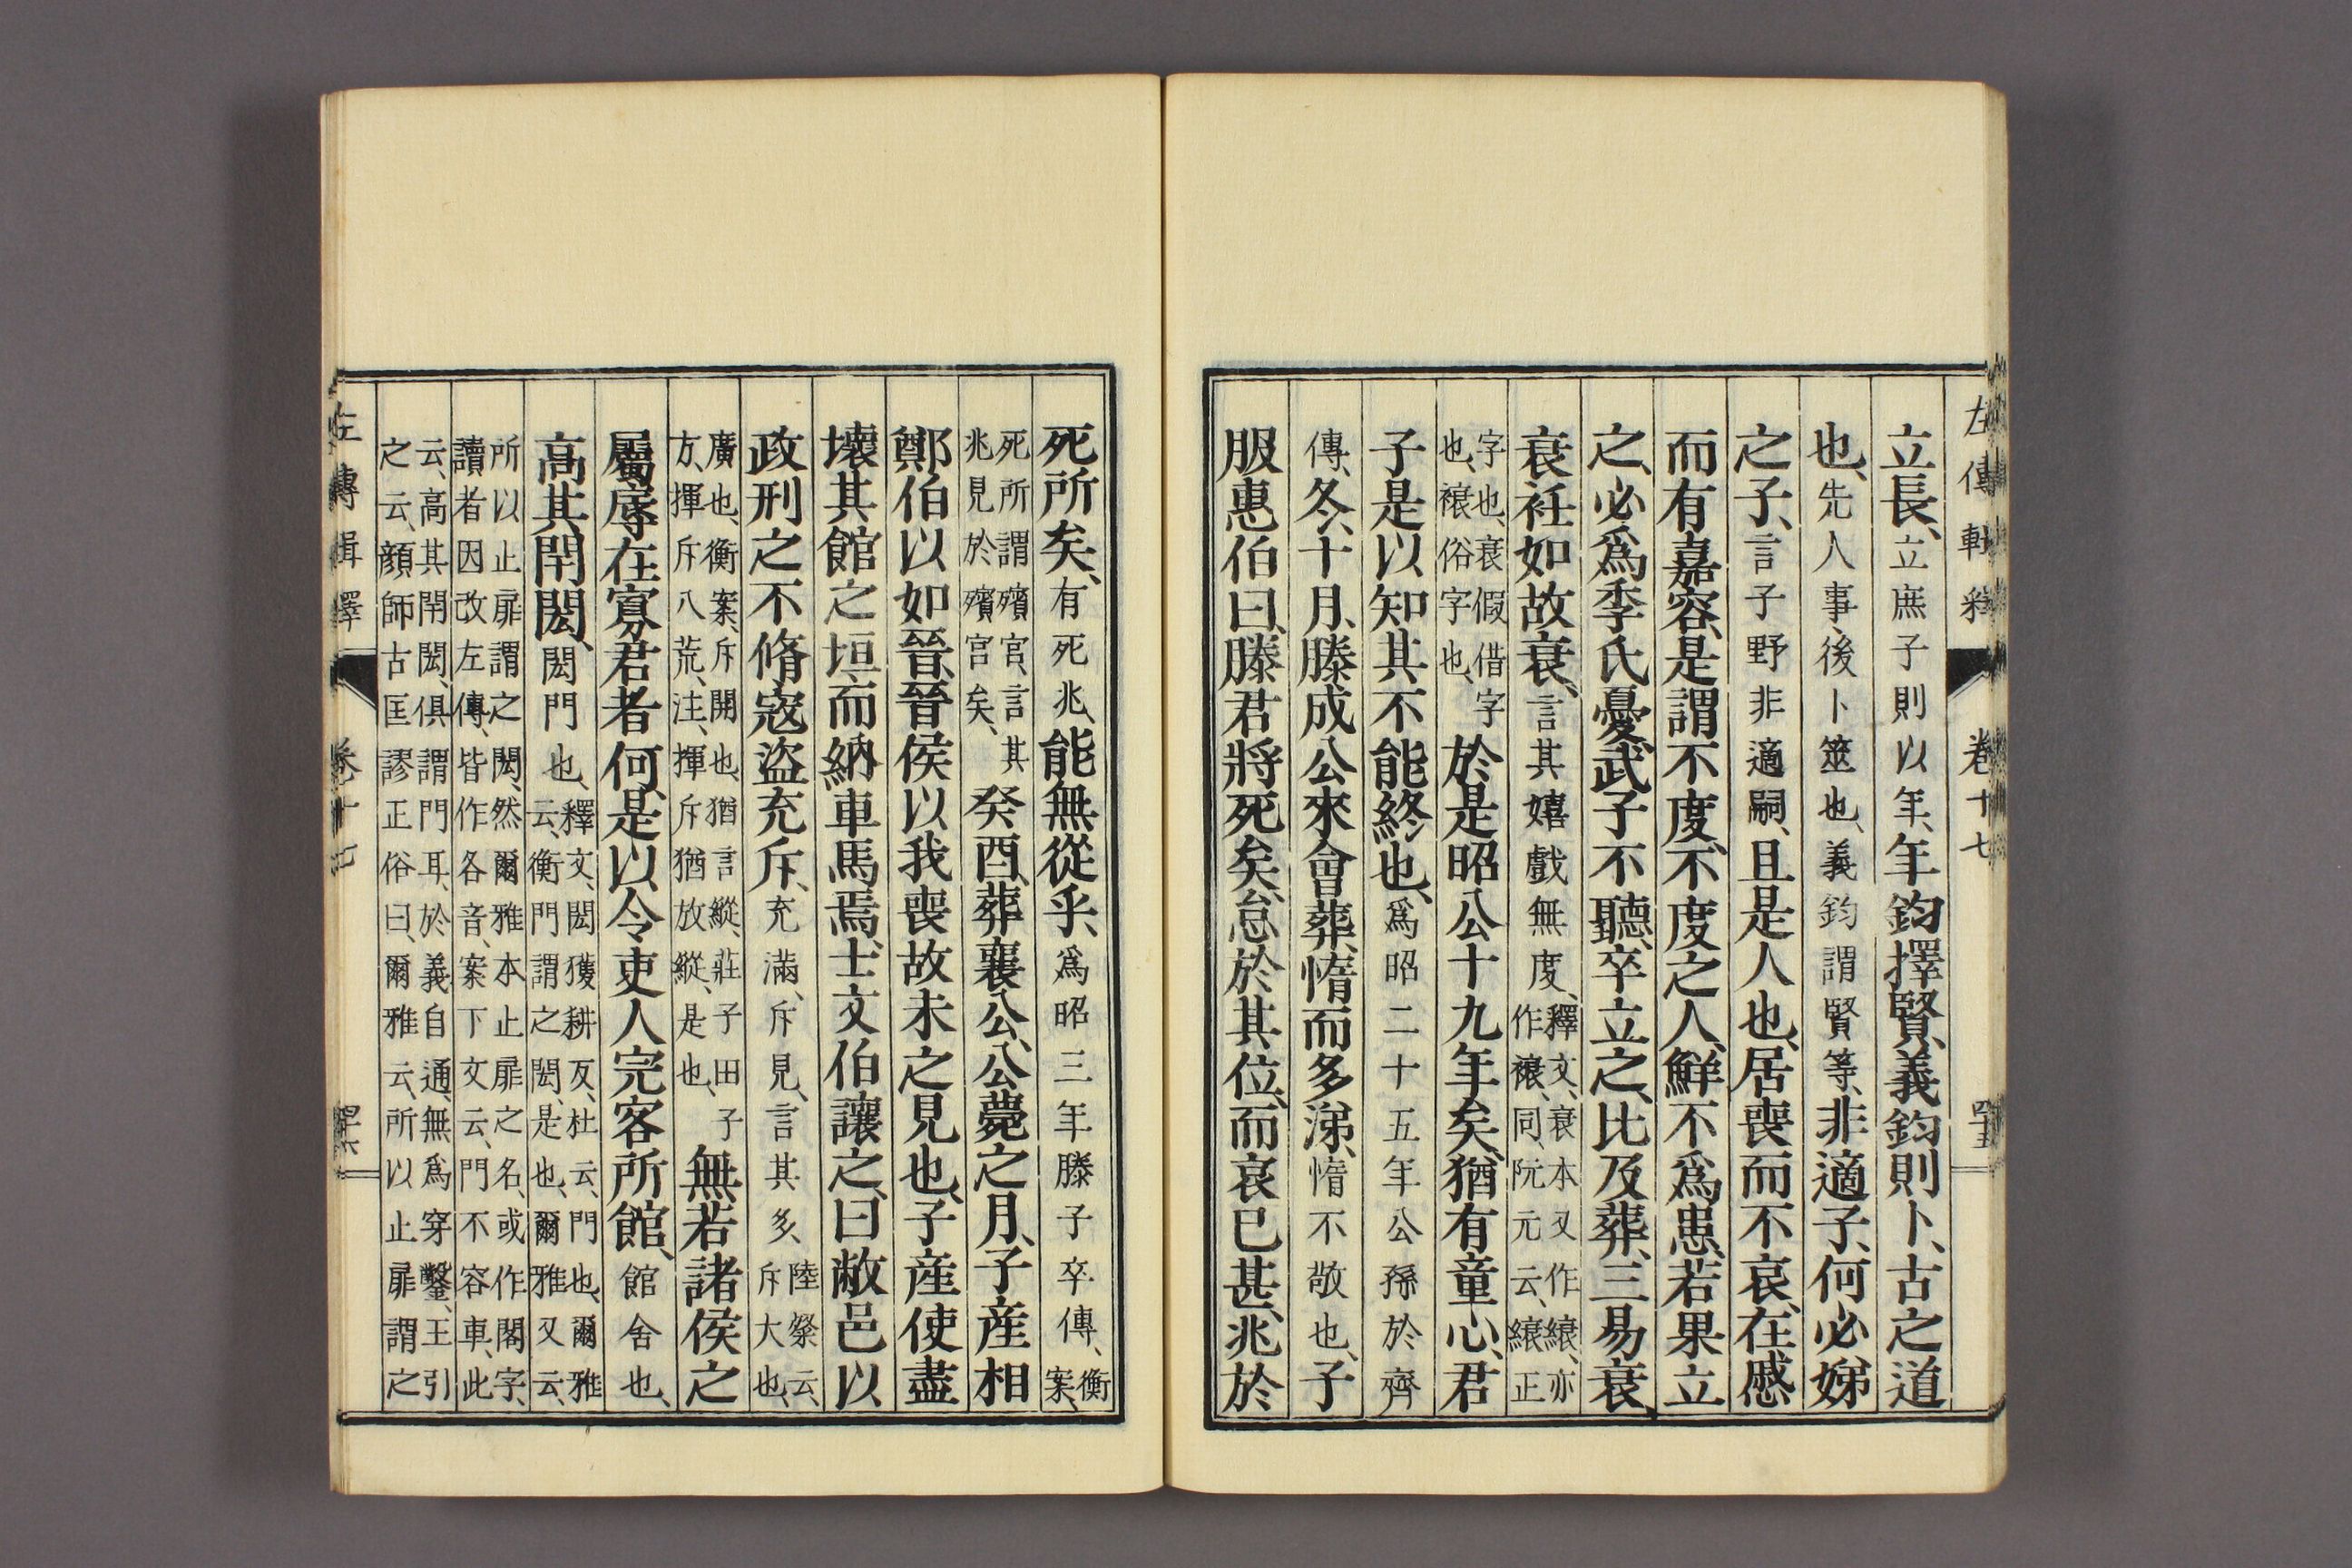 左傳輯釋　卷十七　四十五
立長、立庶子則以年、年鈞擇賢、義鈞則卜、古之道
也、先人事、後卜筮也、義鈞謂賢等、非適子、何必娣
之子、言子野非適嗣、且是人也、居喪而不哀、在慼
而有嘉容、是謂不度、不度之人、鮮不爲患、若果立
之、必爲季氏憂、武子不聽、卒立之、比及葬、三易衰
衰衽如故衰、言其嬉戲無度、釋文、衰本又作縗、亦作𧞸、同、阮元云、縗正
字也、衰假借字也、𧞸俗字也、於是昭公十九年矣、猶有童心、君
子是以知其不能終也、爲昭二十五年公孫於齊
傳、冬、十月、滕成公來會葬、惰而多涕、惰不敬也、子
服惠伯曰、滕君將死矣、怠於其位、而哀已甚、兆於
死所矣、有死兆、能無從乎、爲昭三年滕子卒傳、衡案、
死所謂殯宮、言其兆見於殯宮矣、癸酉、葬襄公、公薨之月、子產相
鄭伯以如晉、晉侯以我喪故、未之見也、子產使盡
壞其館之垣、而納車馬焉、士文伯讓之、曰敝邑以
政刑之不脩、寇盜充斥、充滿、斥見、言其多、陸粲云、斥大也、
廣也、衡案、斥開也、猶言縱、莊子田子方、揮斥八荒、注、揮斥猶放縱、是也、無若諸侯之
屬辱在寡君者何、是以令吏人完客所館、館舍也、
高其閈閎、閎門也、釋文、閎獲耕反、杜云、門也、爾雅云、衡門謂之閎、是也、爾雅又云、
所以止扉謂之閎、然爾雅本止扉之名、或作閣字、讀者因改左傳、皆作各音、案下文云、門不容車、此
云、高其閈閎、俱謂門耳、於義自通、無爲穿鑿、王引之云、顏師古匡謬正俗曰、爾雅云、所以止扉謂之
左傳輯釋　卷十七　四十六